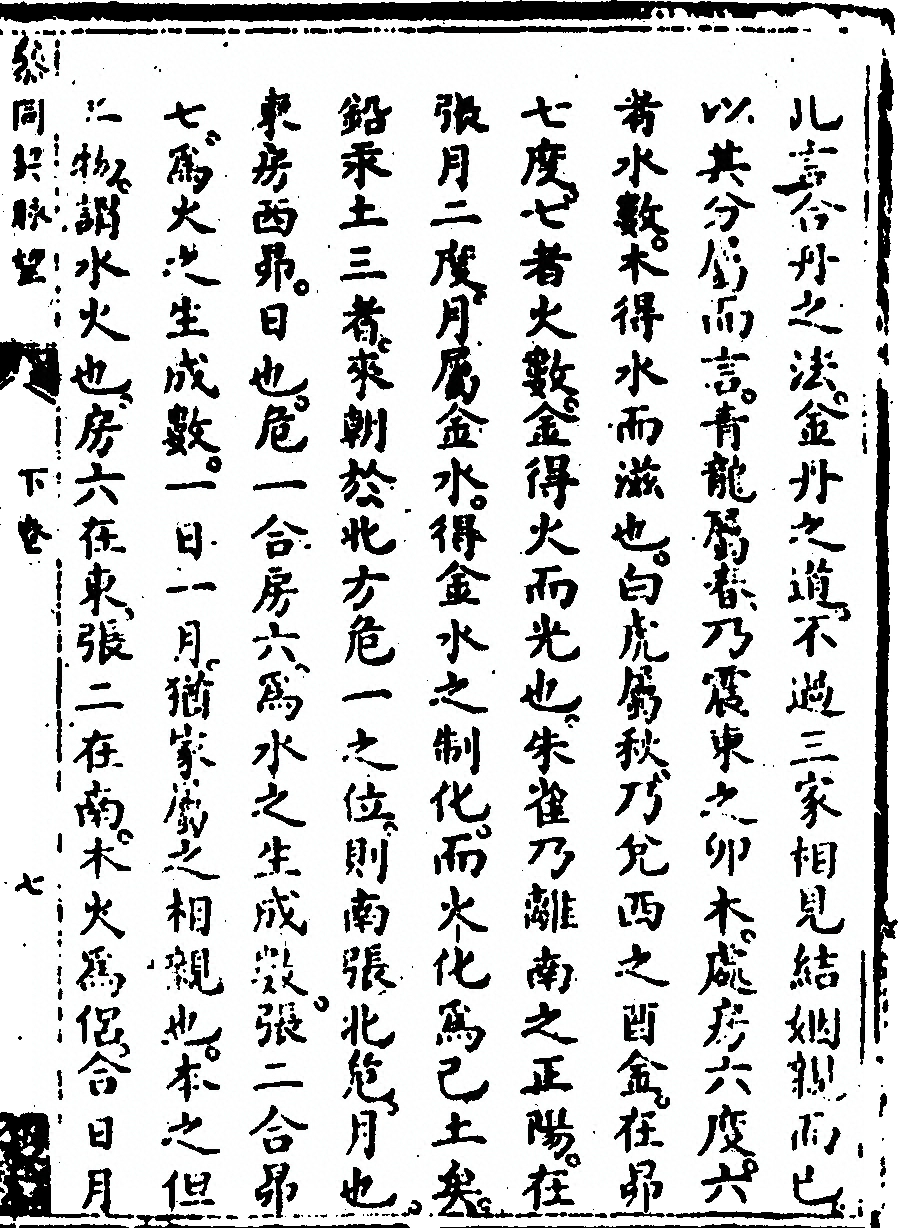 此言合丹之法。金丹之道、不過三家相見結姻親而已、
以其分屬而言。青龍屬春、乃震東之卯木。處房六度。六
者水數。木得水而滋也。白虎屬秋、乃兌西之酉金。在昴
七度。七者火數。金得火而光也。朱雀乃離南之正陽。在
張月二度。月屬金水。得金水之制化。而火化爲己土矣。
鉛汞土三者。來朝於北方危一之位。則南張北危、月也。
東房西昴。日也。危一合房六、爲水之生成數。張二合昴
七。爲火之生成數。一日一月。猶家屬之相親也。本之但
二物。謂水火也。房六在東、張二在南。木火爲侶。合日月
參同契脉望 下卷 七